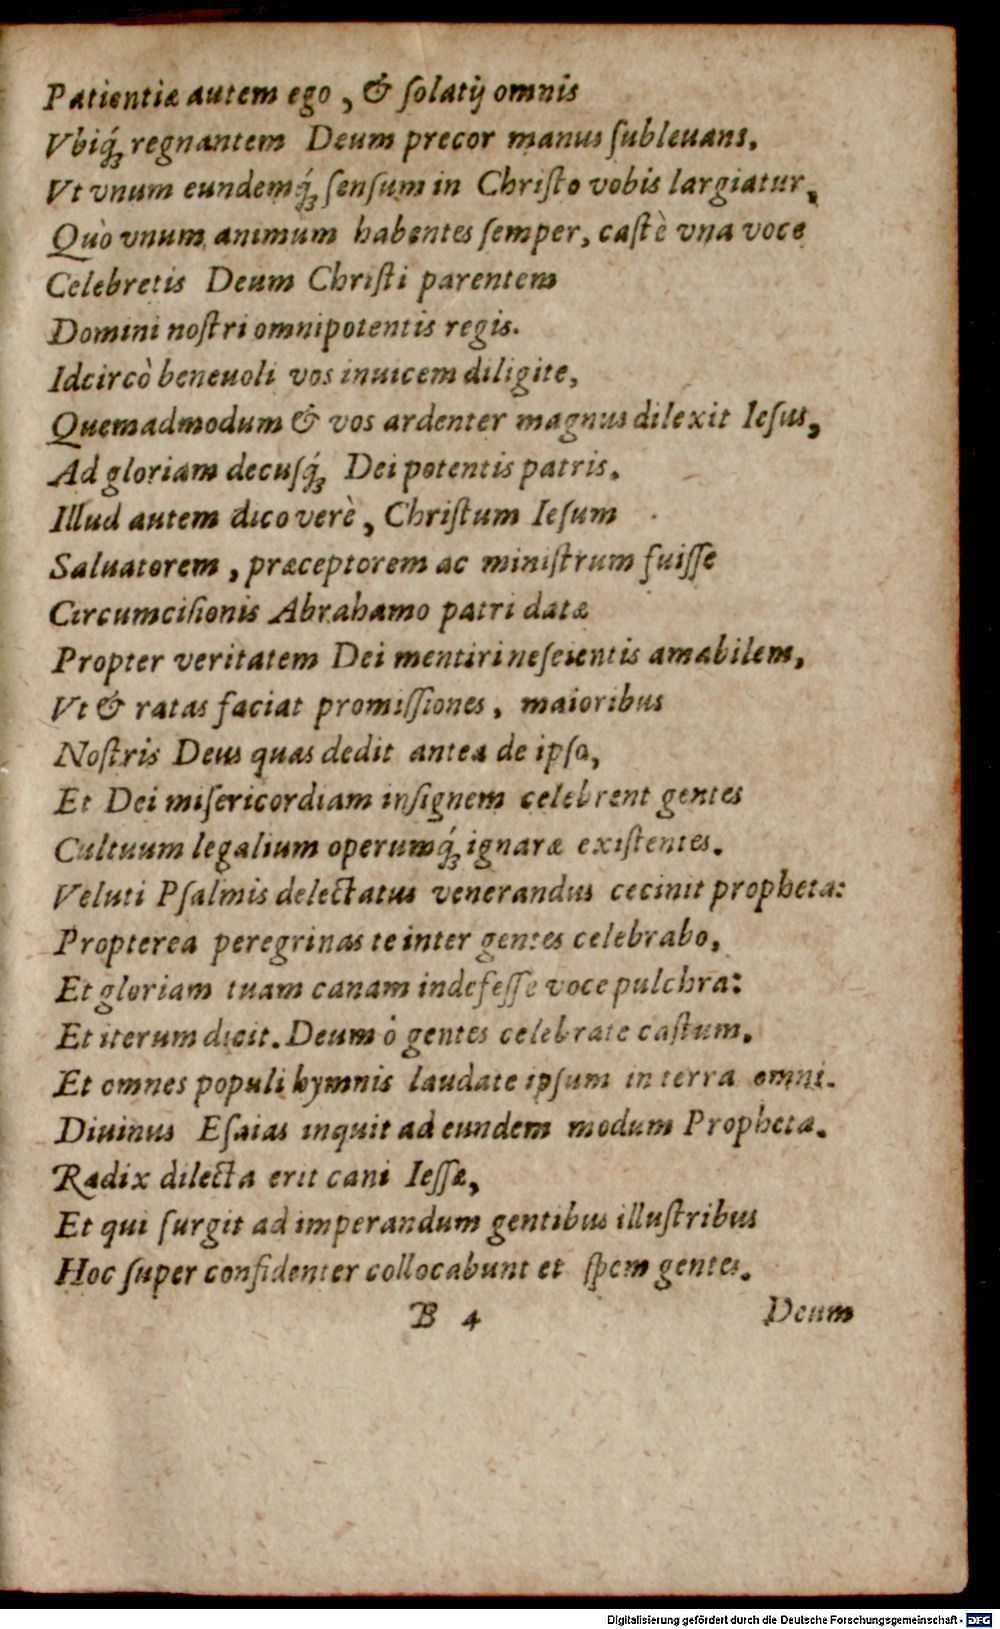 Patientiæ autem ego, & ſolatij omnis
Vbiq́ꝫ regnantem Deum precor manus ſubleuans.
Vt vnum eundemq́ꝫ ſenſum in Chriſto vobis largiatur,
Quò vnum animum habentes ſemper, caſtè vna voce
Celebretis Deum Chriſti parentem
Domini noſtri omnipotentis regis.
Idcircò beneuoli vos inuicem diligite,
Quemadmodum & vos ardenter magnus dilexit Ieſus,
Ad gloriam decuſq́ꝫ Dei potentis patris.
Illud autem dico verè, Chriſtum Ieſum
Saluatorem, præceptorem ac miniſtrum fuiſſe
Circumciſionis Abrahamo patri datæ
Propter veritatem Dei mentiri neſeientis amabilem,
Vt & ratas faciat promiſſiones, maioribus
Noſtris Deus quas dedit antea de ipſo,
Et Dei miſericordiam inſignem celebrent gentes
Cultuum legalium operumq́ꝫ ignaræ exiſtentes.
Veluti Pſalmis delectatus venerandus cecinit propheta:
Propterea peregrinas te inter gentes celebrabo,
Et gloriam tuam canam indefeſſe voce pulchra:
Et iterum dicit. Deum ò gentes celebrate caſtum.
Et omnes populi hymnis laudate ipſum in terra omni.
Diuinus Eſaias inquit ad eundem modum Propheta.
Radix dilecta erit cani Ieſſæ,
Et qui ſurgit ad imperandum gentibus illuſtribus
Hoc ſuper confidenter collocabunt et ſpem gentes.
B 4 Deum
Digitalisierung gefördert durch die Deutsche Forschungsgemeinschaft - DFG